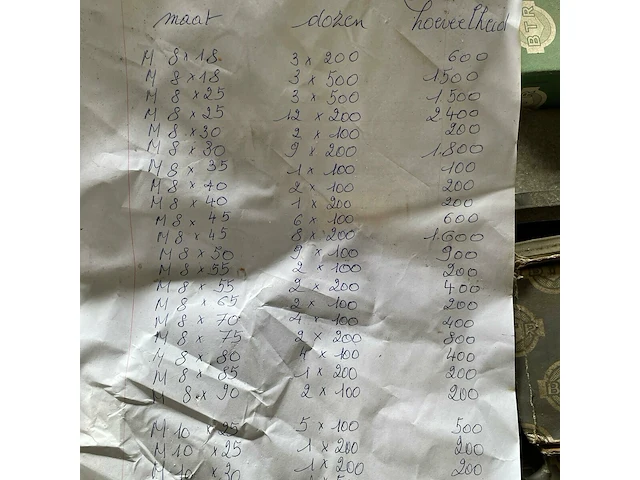 maat dozen hoeveelheid
M 8 x 18 3 x 200 600
M 8 x 18 3 x 500 1500
M 8 x 25 3 x 500 1.500
M 8 x 25 12 x 200 2.400
M 8 x 30 2 x 100 200
M 8 x 30 9 x 200 1.800
M 8 x 35 1 x 100 100
M 8 x 40 2 x 100 200
M 8 x 40 1 x 200 200
M 8 x 45 6 x 100 600
M 8 x 45 8 x 200 1.600
M 8 x 50 9 x 100 900
M 8 x 55 2 x 100 200
M 8 x 55 2 x 200 400
M 8 x 65 2 x 100 200
M 8 x 70 4 x 100 400
M 8 x 75 2 x 200 800
M 8 x 80 4 x 100 400
M 8 x 85 1 x 200 200
M 8 x 90 2 x 100 200
M 10 x 25 5 x 100 500
M 10 x 25 1 x 200 200
M 10 x 30 1 x 200 200
BTR